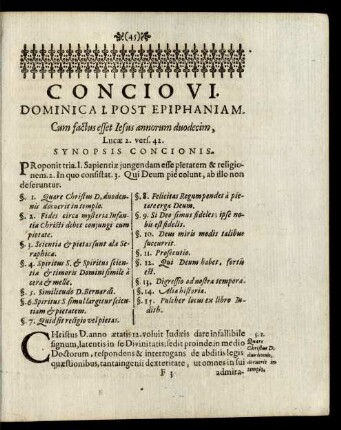 (45)
CONCIO VI.
DOMINICA I. POST EPIPHANIAM.
Cum factus esset Iesus annorum duodecim,
Lucæ 2. vers. 42.
SYNOPSIS CONCIONIS.
PRoponit tria. I. Sapientiæ jungendam esse pietatem & religio-
nem. 2. In quo consistat. 3. Qui Deum piè colunt, ab illo non
deseruntur.
§. 1. Quare Christus D. duode-
nnis docuerit in templo.
§. 2. Fides circa mysteria Infan-
tiæ Christi debet conjungi cum
pietate.
§. 3. Scientia & pietas sunt ala Se-
raphica.
§. 4. Spiritus S. & Spiritus scien-
tiæ & timoris Domini simile à
cera & melle.
§. 5. Similitudo D. Bernardi.
§. 6. Spiritus S. simul largitur scien-
tiam & pietatem.
§. 7. Quid sit religio vel pietas.
§. 8. Felicitas Regum pendet à pie-
tate erga Deum.
§. 9. Si Deo simus fideles: ipse no-
bis est fidelis.
§. 10. Deus miris modis talibus
succurrit.
§. 11. Prosecutio.
§. 12. Qui Deum habet, fortis
est.
§. 13. Digressio ad nostra tempora.
§. 14. Alia historia.
§. 15. Pulcher locus ex libro Iu-
dith.
CHristus D. anno ætatis 12. voluit Judæis dare infallibile
signum, latentis in se Divinitatis: sedit proinde in medio
Doctorum, respondens & interrogans de abditis legis
quæstionibus, tanta ingenii dexteritate, ut omnes in sui
§. 1.
Quare
Christus D.
docuerit in
templo.
F 3
admira-